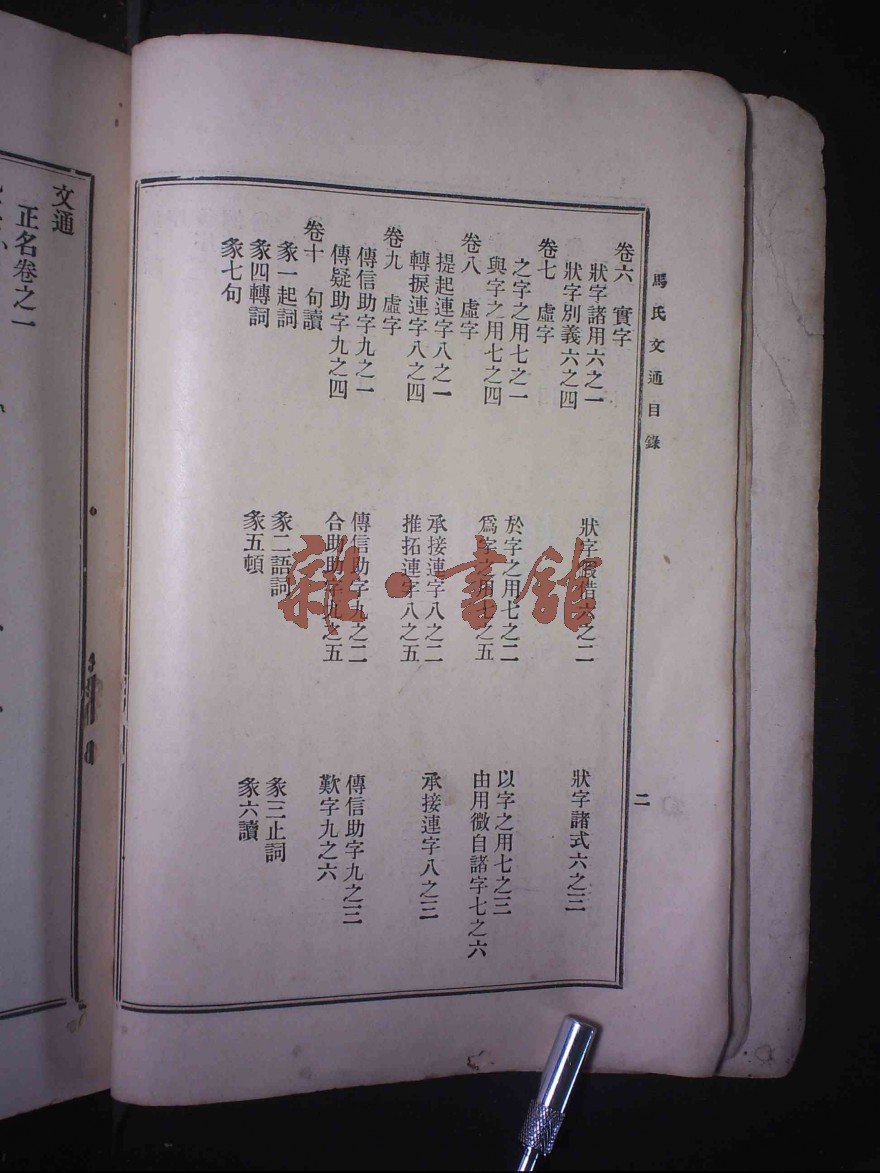 馬氏文通目錄
二
卷六 實字
狀字諸用六之一 狀字假借六之二 狀字諸式六之三
狀字別義六之四
卷七 虛字
之字之用七之一 於字之用七之二 以字之用七之三
與字之用七之四 爲字之用七之五 由用微自諸字七之六
卷八 虛字
提起連字八之一 承接連字八之二 承接連字八之三
轉捩連字八之四 推拓連字八之五
卷九 虛字
傳信助字九之一 傳信助字九之二 傳信助字九之三
傳疑助字九之四 合助助字九之五 歎字九之六
卷十 句讀
彖一起詞 彖二語詞 彖三止詞
彖四轉詞 彖五頓 彖六讀
彖七句
文通
正名卷之一
雜·書舘